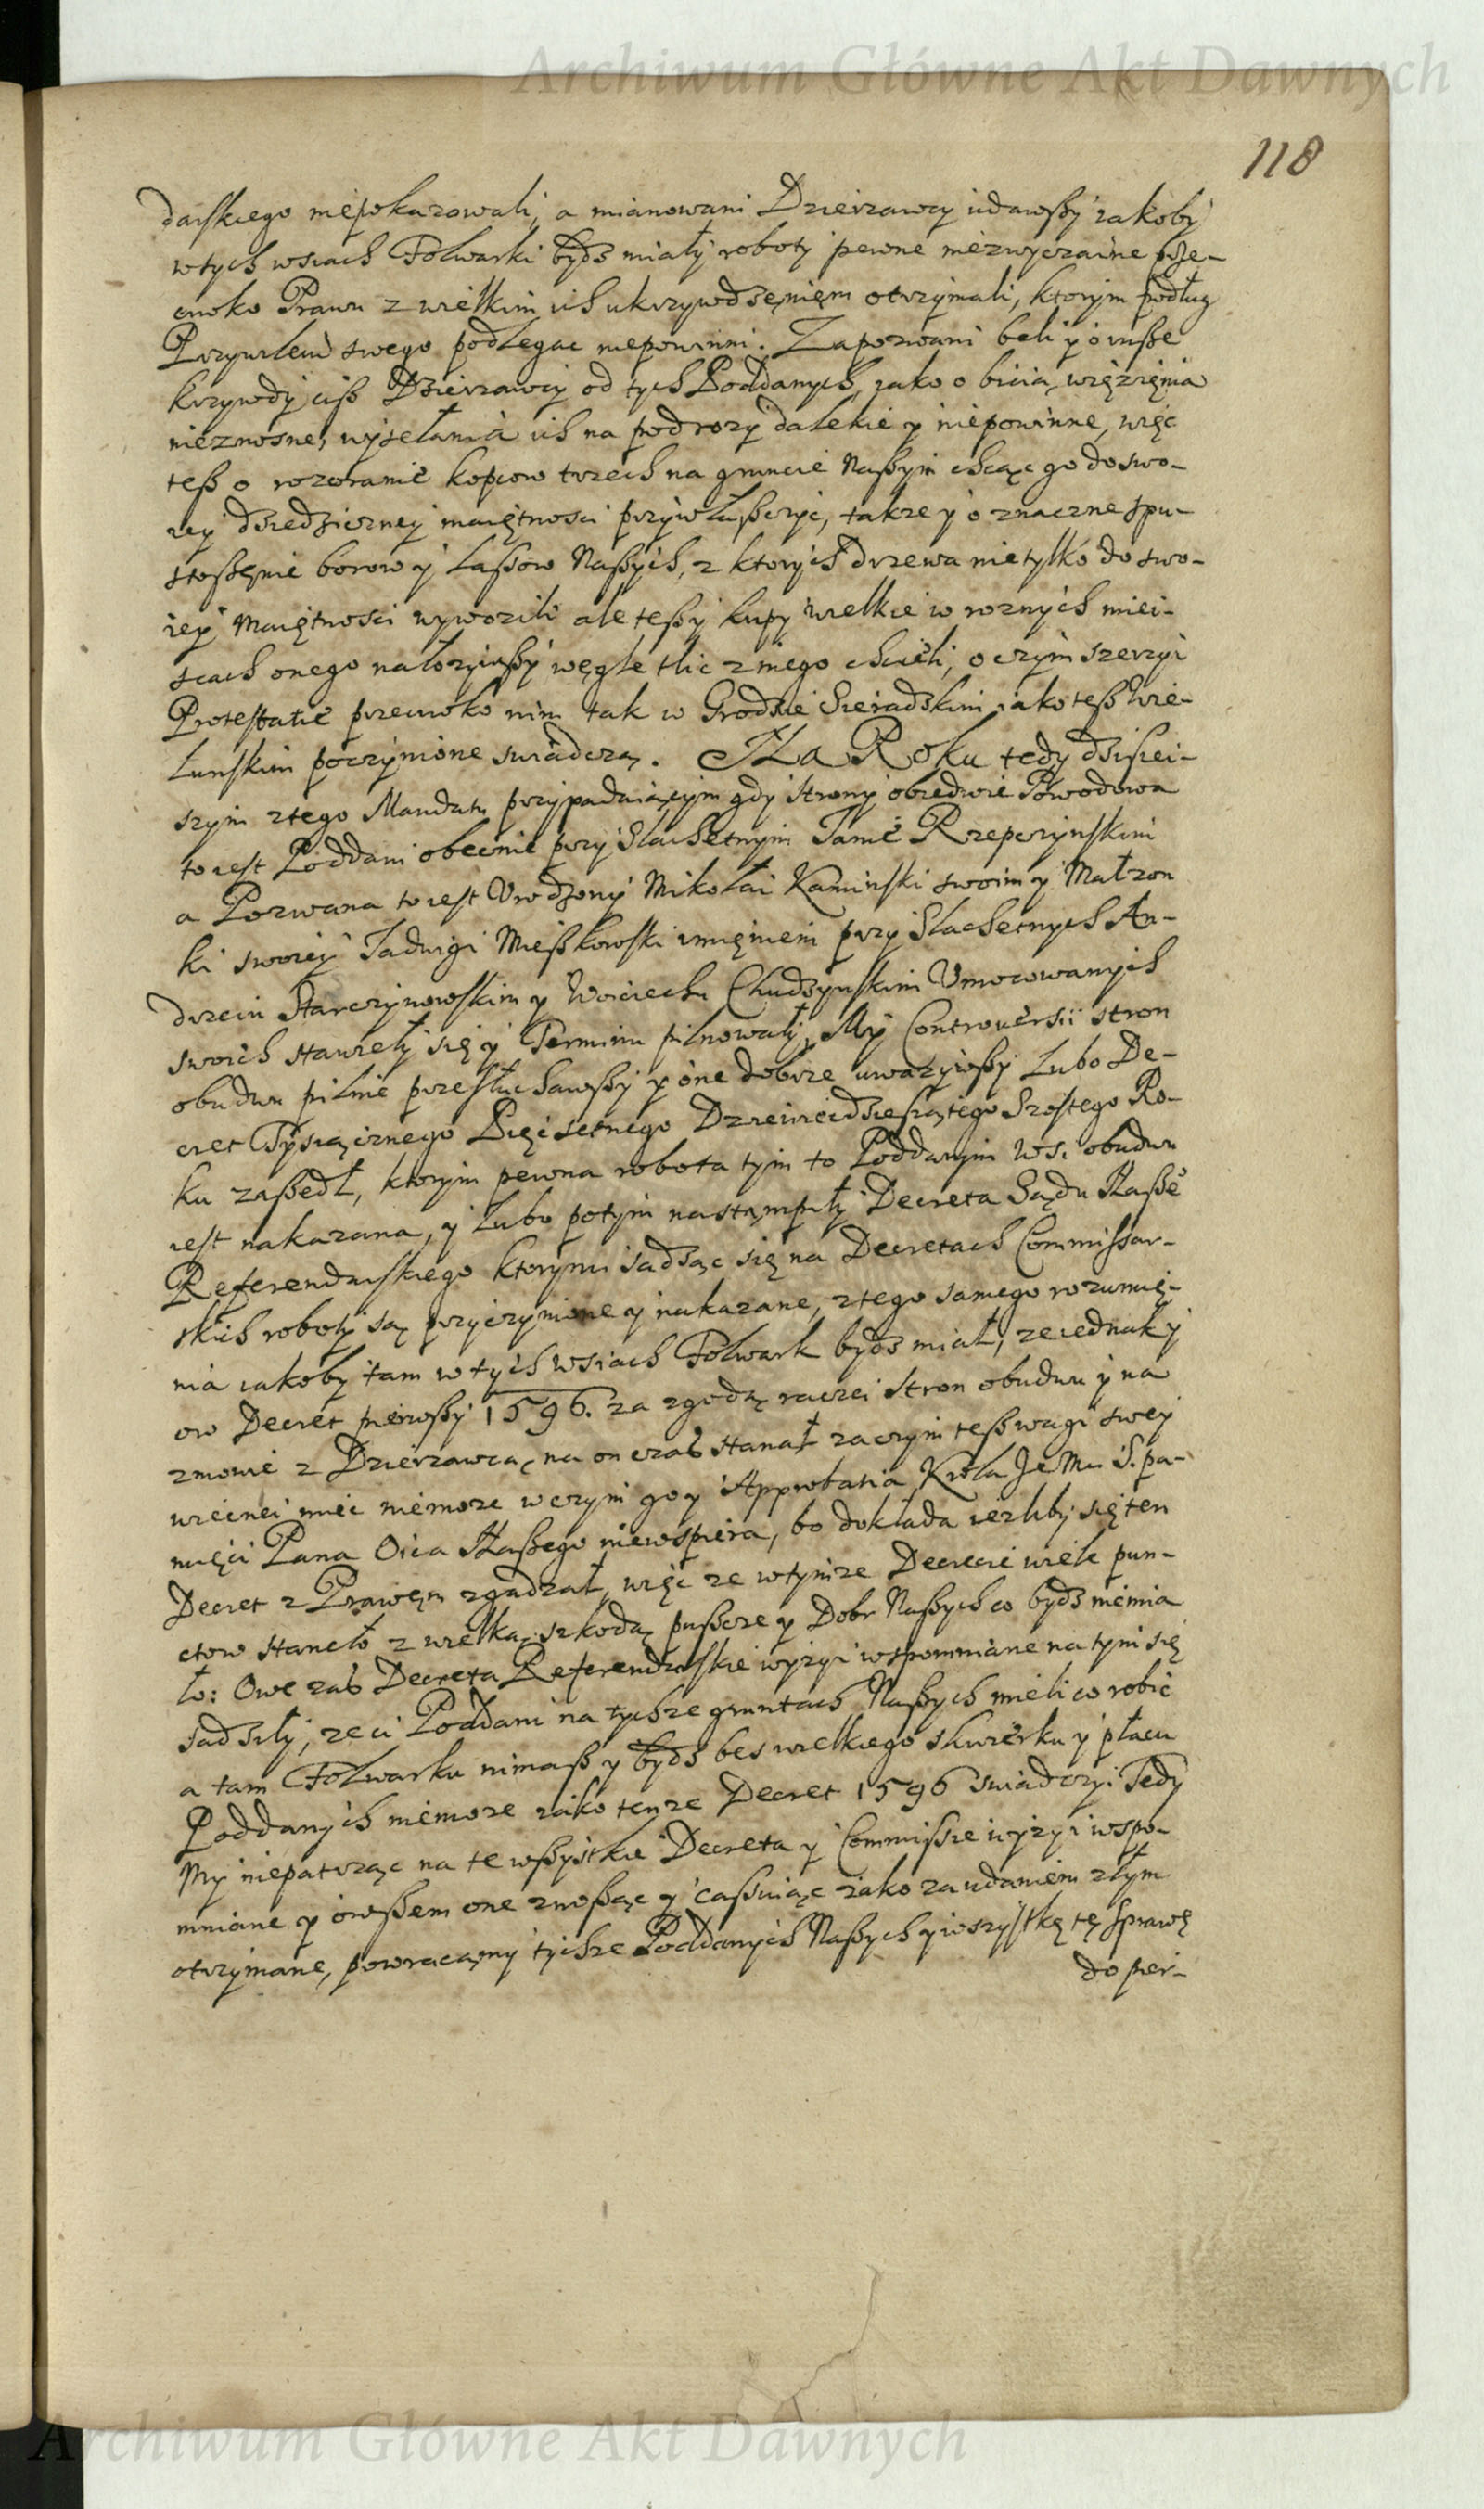 Archiwum Główne Akt Dawnych
118
darskiego niepokazowali, a mianowani Dzierzawcy udawszy iakoby
wtych wsiach Folwarki bydz miały roboty pewne niezwyczaine prze-
ciwko Prawu z wielkim ich ukrzywdzęnięm otrzymali, ktorym podług
Przywileiu swego podlegac niepowinni. Zapozwani beli y o insze
krzywdy ciż Dzierzawcy od tych Poddanych, iako o bicia, więzięnia
nieznosne, wysełania ich na podrozy dalekie y niepowinne, więc
tesz o rozoranie kopcow trzech na gruncie Naszym chcąc go do swo-
iey dziedziczney maiętnosci przywłaszczyc, takze y o znaczne spu-
stoszęnie borow y lassow Naszych, z ktorych drzewa nietylko do swo-
iey Maiętnosci wywozili ale teszy kupy wielkie w roznych miei-
scach onego nałozywszy węgle tlic z niego chcieli, o czym szerzyi
Protestatie przeciwko nim tak w Grodzie Sieradzkim iako tesz Wie-
lunskim poczynione swiadczą. Na Roku tedy dzisiei-
szym ztego Mandatu przypadaiącym gdy strony obiedwie Powodowa
to iest Poddani obecnie przy Slachetnym Janie Rzepczynskim
a Pozwana to iest Urodzony Mikołai Kaminski swoim y Małzon
ki swoiey Jadwigi Mieszkowski imięniem przy Slachetnych An-
drzeiu Starczynowskim y Woiciechu Chudzynskim Umocowanych
swoich stawieły się y Terminu pilnowały, My Controuersii stron
obudwu pilnie przesłuchawszy y one dobrze uwazywszy lubo De-
cret Tysiącznego Pięcsetnego Dziewiecdziesiątego Szostego Ro-
ku zaszedł, ktorym pewna robota tym to Poddanym wsi obudwu
iest nakazana, y lubo potym nastąmpiły Decreta Sądu Nasze
Referendarskiego ktorymi sadząc się na Decretach Commissar-
skich roboty są przyczynione y nakazane, ztego samego rozumię-
nia iakoby tam w tych wsiach Folwark bydz miał, ze iednak y
ow Decret pierwszy 1596. za zgodą raczei stron obudwu y na
zmowie z Dzierzawcą na on czas stanał za czym tesz wagi swey
wiecnei miec niemoze w czym go y Approbatia Krola Je Mci S. pa-
mięci Pana Oica Naszego niewspiera, bo dokłada iezliby się ten
Decret z Prawęm zgadzał, więc ze wtymze Decrecie wiele pun-
ctow staneło z wielką szkodą puszcze y Dobr Naszych co bydz niemia
ło: Owe zas Decreta Referendarskie wyzyi wspomniane na tym się
sadziły, ze ci Poddani na tychze gruntach Naszych mieli co robic
a tam Folwarku nimasz y bydz bes wielkiego skwierku y płacu
Poddanych niemoze iako tenze Decret 1596 swiadczyi Tedy
My niepatrząc na te wszystkie Decreta y Commissie wyzyi wspo-
mniane y owszem one znosząc y cassuiąc iako za udaniem złym
otrzymane, powracamy tychze Poddanych Naszych y wszystkę tę sprawę
do pier-
Archiwum Główne Akt Dawnych